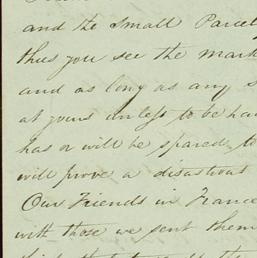 and the Small Parcel
thus you see the mark
and as long as any s
at yours unless to be ha
has or will be spared to
will prove a disastrous
Our Friends in France
with those we sent them